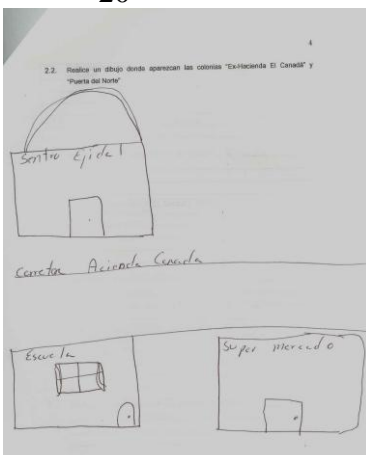 20
4
2.2. Realice un dibujo donde aparezcan las colonias "Ex-Hacienda El Canadá" y
"Puerta del Norte".
Sentro Ejidal
Carretera Acienda Canada
Escuela
Super mercado